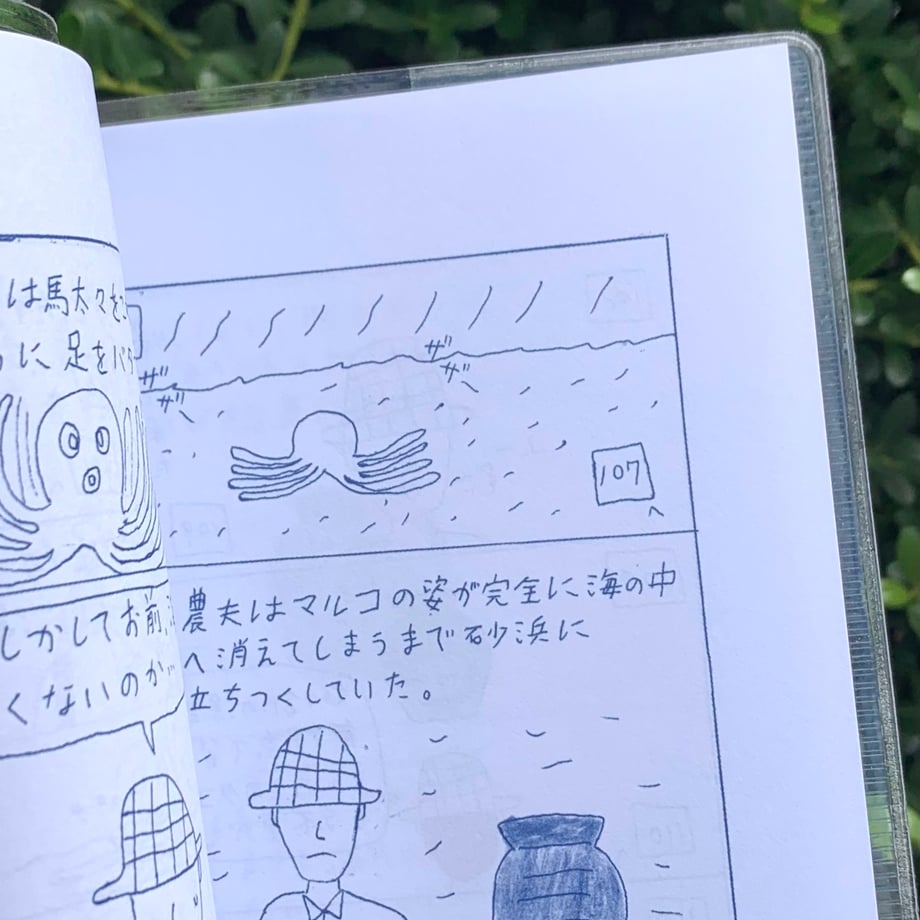 は馬太々を
に足をバタ
しかしてお前
くないのか
ザ
ザ
ザ
ザ
107
農夫はマルコの姿が完全に海の中
へ消えてしまうまで砂浜に
立ちつくしていた。